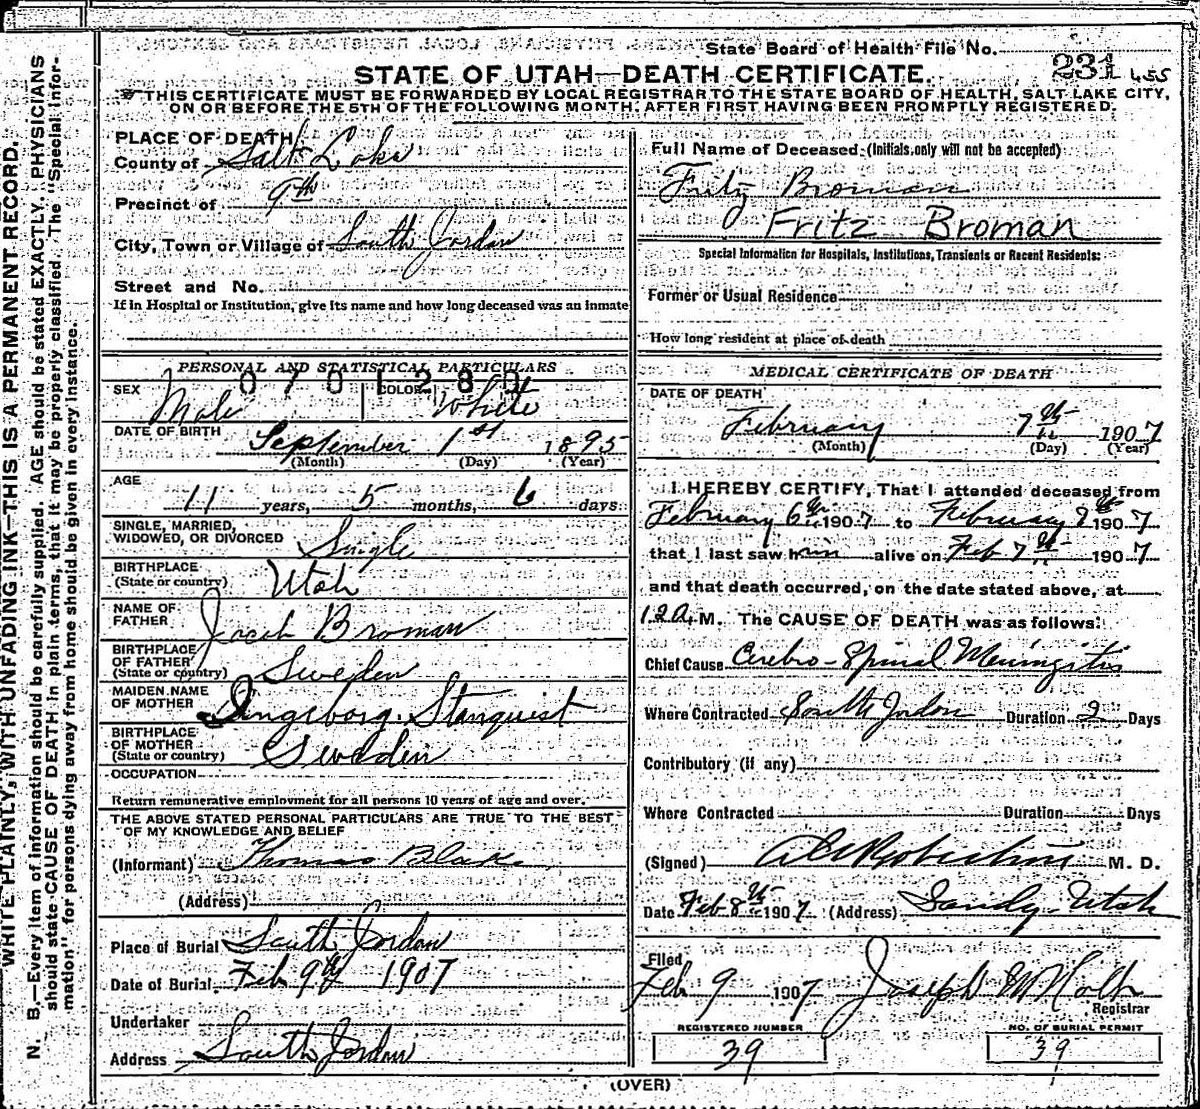 State Board of Health File No.
231 455
STATE OF UTAH—DEATH CERTIFICATE.
THIS CERTIFICATE MUST BE FORWARDED BY LOCAL REGISTRAR TO THE STATE BOARD OF HEALTH, SALT LAKE CITY,
ON OR BEFORE THE 5TH OF THE FOLLOWING MONTH. AFTER FIRST HAVING BEEN PROMPTLY REGISTERED.
WRITE PLAINLY, WITH UNFADING INK—THIS IS A PERMANENT RECORD.
N. B.—Every item of information should be carefully supplied. AGE should be stated EXACTLY. PHYSICIANS
should state CAUSE OF DEATH in plain terms, that it may be properly classified. The "Special Infor-
mation" for persons dying away from home should be given in every instance.
PLACE OF DEATH
County of Salt Lake
Precinct of 9th
City, Town or Village of South Jordan
Street and No.
If in Hospital or Institution, give its name and how long deceased was an inmate
PERSONAL AND STATISTICAL PARTICULARS
SEX Male COLOR White
DATE OF BIRTH September 1st 1895
(Month) (Day) (Year)
AGE
11 years, 5 months, 6 days
SINGLE, MARRIED,
WIDOWED, OR DIVORCED Single
BIRTHPLACE
(State or country) Utah
NAME OF
FATHER Jacob Broman
BIRTHPLACE
OF FATHER
(State or country) Sweden
MAIDEN NAME
OF MOTHER Ingeborg Stanquist
BIRTHPLACE
OF MOTHER
(State or country) Sweden
OCCUPATION
Return remunerative employment for all persons 10 years of age and over.
THE ABOVE STATED PERSONAL PARTICULARS ARE TRUE TO THE BEST
OF MY KNOWLEDGE AND BELIEF
(Informant) Thomas Blake
(Address)
Place of Burial South Jordan
Date of Burial Feb 9th 1907
Undertaker
Address South Jordan
Full Name of Deceased (Initials only will not be accepted)
Fritz Broman
Fritz Broman
Special Information for Hospitals, Institutions, Transients or Recent Residents:
Former or Usual Residence
How long resident at place of death
MEDICAL CERTIFICATE OF DEATH
DATE OF DEATH
February 7th 1907
(Month) (Day) (Year)
I HEREBY CERTIFY, That I attended deceased from
February 6th 1907 to February 7th 1907
that I last saw him alive on Feb 7th 1907
and that death occurred, on the date stated above, at
12 A. M. The CAUSE OF DEATH was as follows:
Chief Cause Cerebro-Spinal Meningitis
Where Contracted South Jordan Duration 2 Days
Contributory (if any)
Where Contracted Duration Days
(Signed) M. D.
Date Feb 8th 1907 (Address) Sandy Utah
Filed
Feb 9 1907 Joseph M Holt
Registrar
REGISTERED NUMBER
39
NO. OF BURIAL PERMIT
39
(OVER)